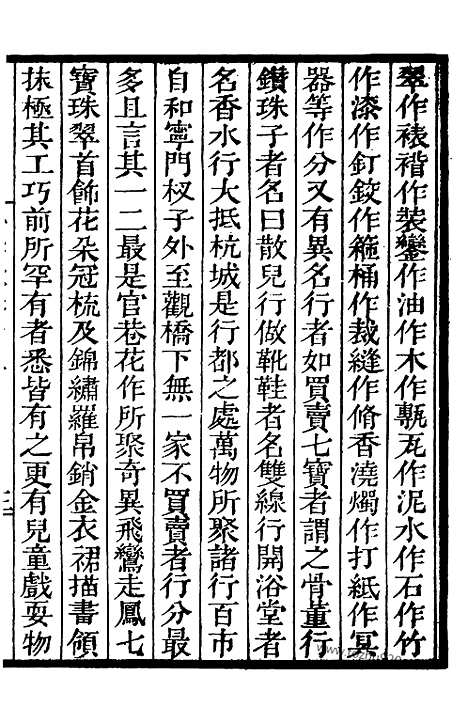 翠作裱褙作裝鑾作油作木作甎瓦作泥水作石作竹
作漆作釘鉸作箍桶作裁縫作脩香澆燭作打紙作冥
器等作分又有異名行者如買賣七寶者謂之骨董行
鑽珠子者名曰散兒行做靴鞋者名雙線行開浴堂者
名香水行大抵杭城是行都之處萬物所聚諸行百市
自和寧門杈子外至觀橋下無一家不買賣者行分最
多且言其一二最是官巷花作所聚奇異飛鸞走鳳七
寶珠翠首飾花朵冠梳及錦繡羅帛銷金衣裙描畫領
抹極其工巧前所罕有者悉皆有之更有兒童戲耍物